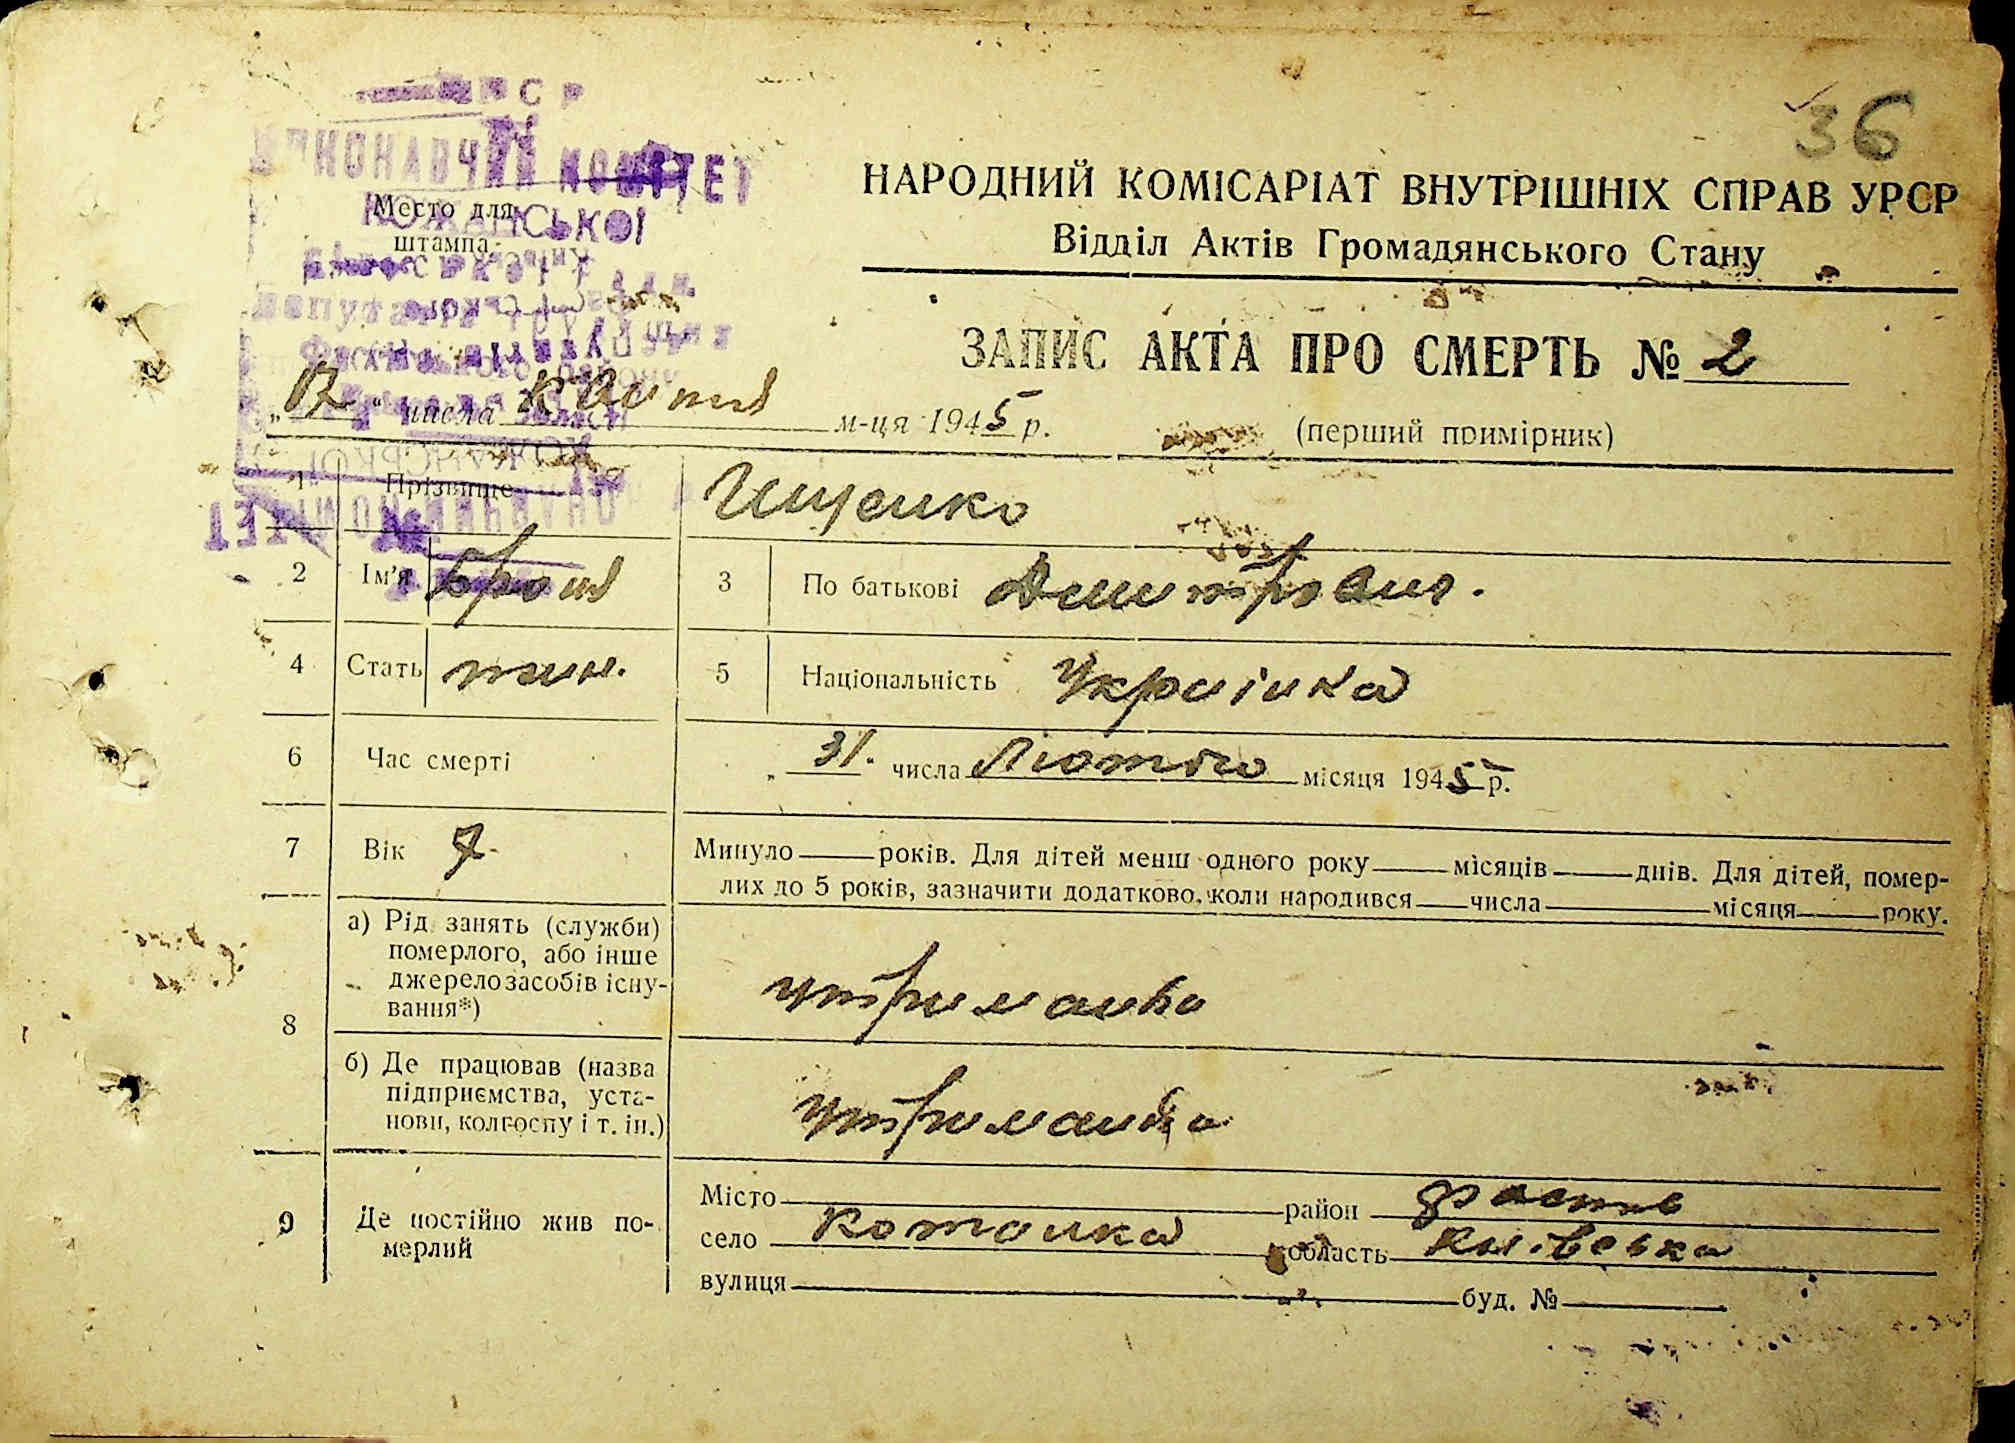 36
ВИКОНАВЧИЙ КОМІТЕТ
КОЖАНСЬКОЇ
Место для
штампа
НАРОДНИЙ КОМІСАРІАТ ВНУТРІШНІХ СПРАВ УРСР
Відділ Актів Громадянського Стану
ЗАПИС АКТА ПРО СМЕРТЬ № 2
" числа м-ця 1945 р. (перший примірник)
1 Прізвище Ищенко
2 Ім'я 3 По батькові
4 Стать 5 Національність Українка
6 Час смерті 31. числа Лютого місяця 1945 р.
7 Вік 7 Минуло року. років. Для дітей менш одного року місяців днів. Для дітей, помер-
лих до 5 років, зазначити додатково, коли народився числа місяця року.
8 а) Рід занять (служби)
померлого, або інше
джерело засобів існу-
вання*)
утриманка
б) Де працював (назва
підприємства, уста-
нови, колгоспу і т. ін.)
утриманка
9 Де постійно жив по-
мерлий
Місто район Фастів
село область Київська
вулиця буд. №